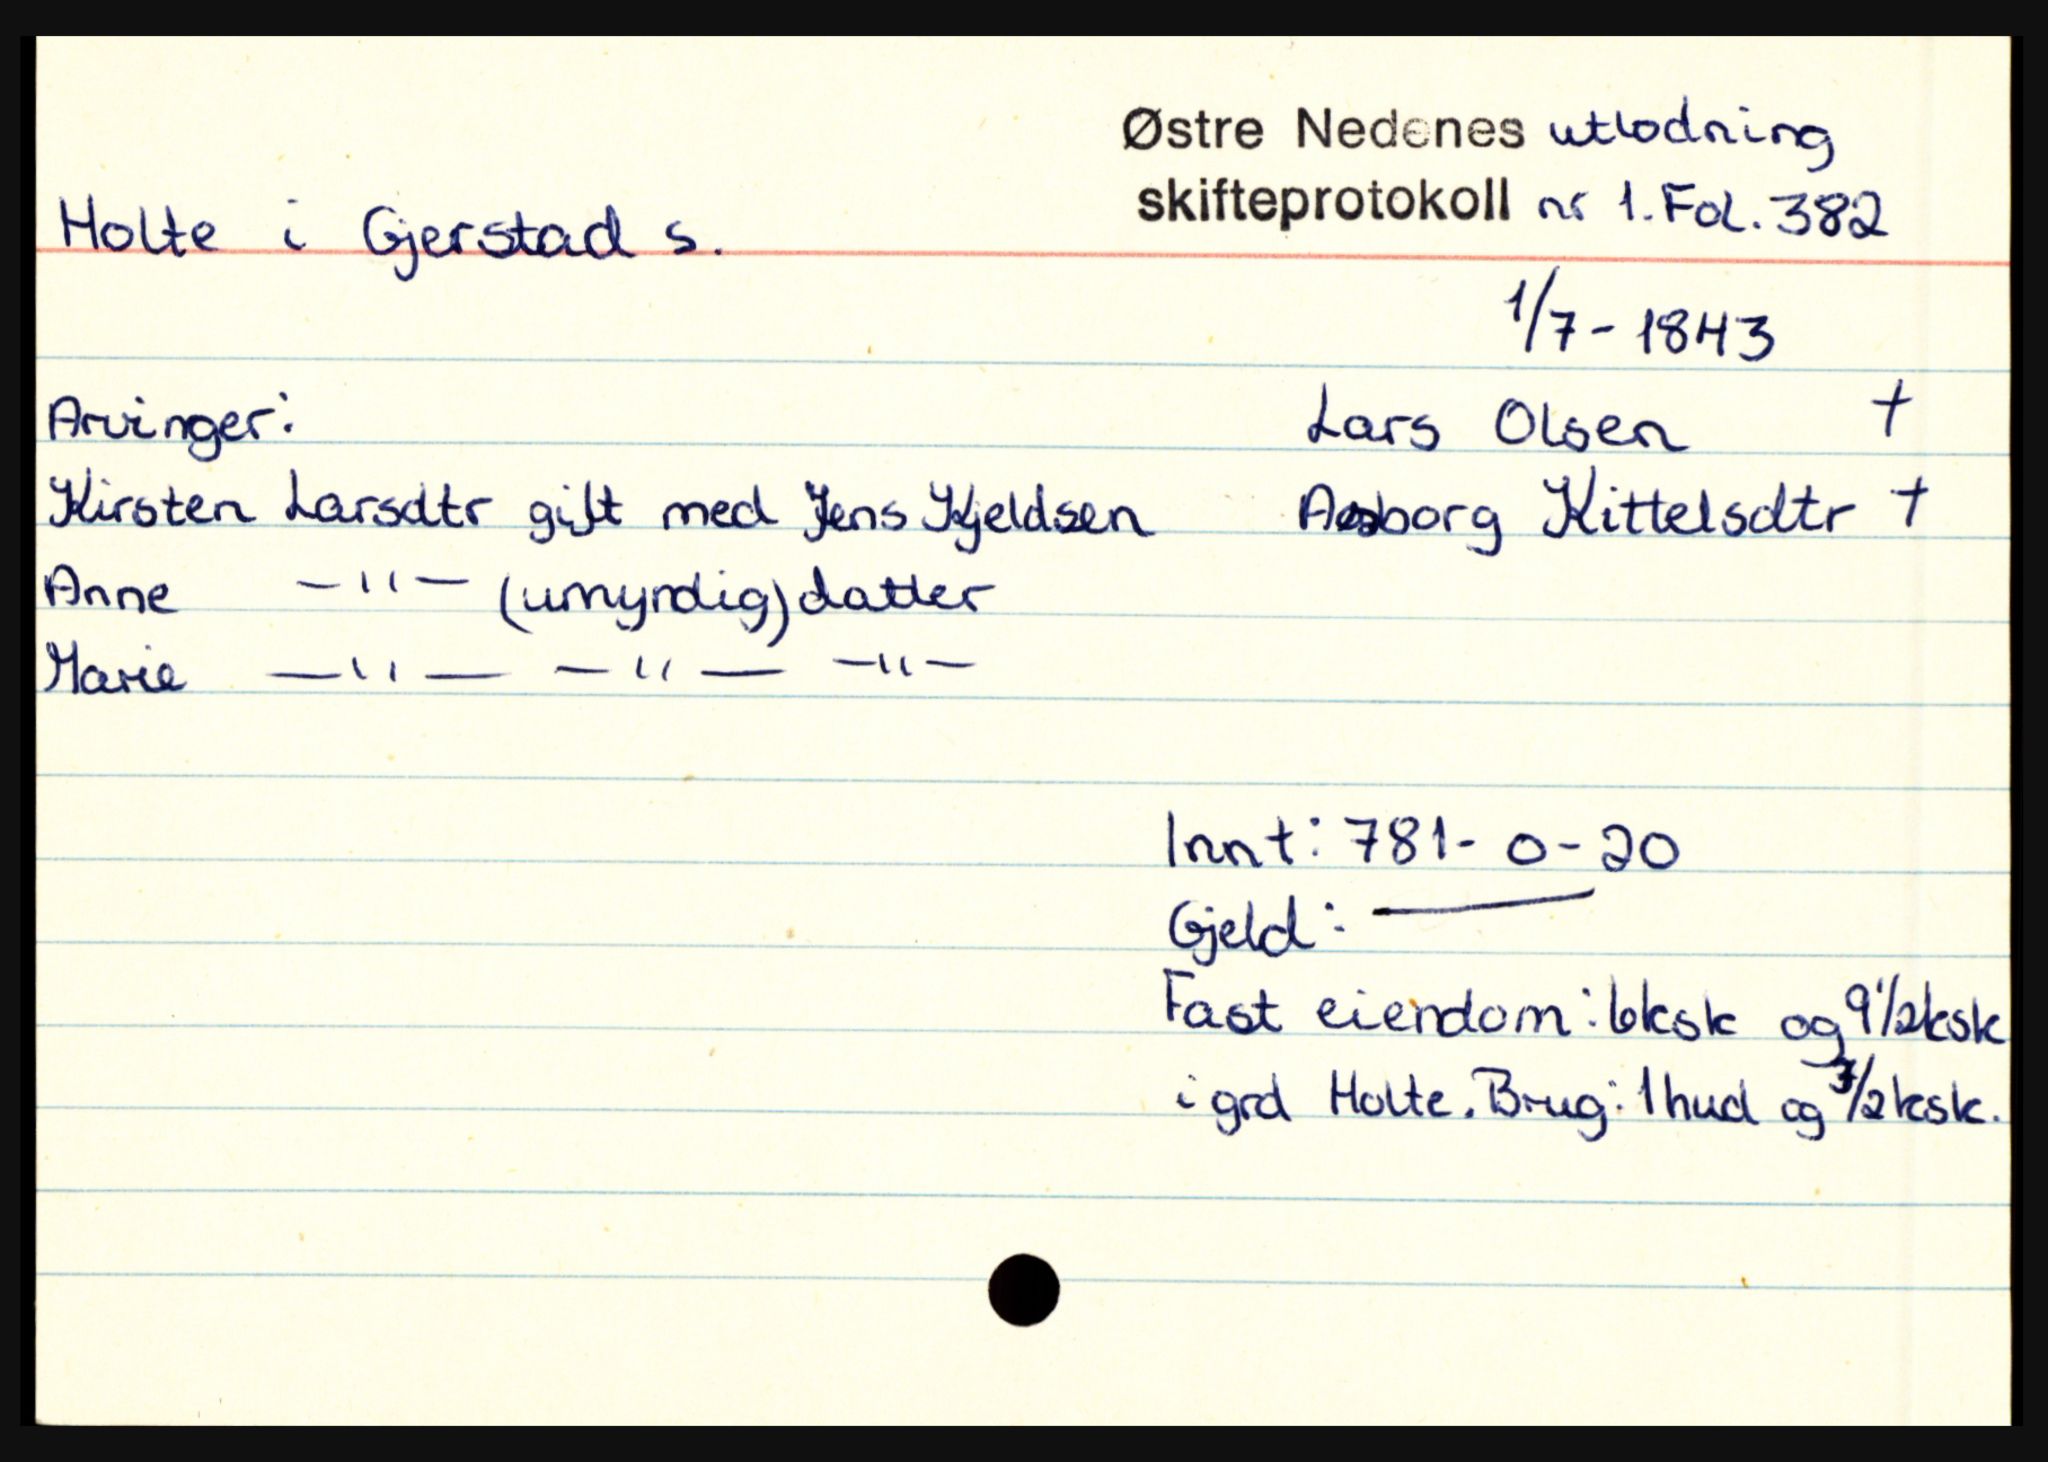 Østre Nedenes utlodning
skifteprotokoll nr 1. Fol. 382
Holte i Gjerstad s.
1/7 - 1843
Arvinger:
Lars Olsen †
Kirsten Larsdtr gift med Jens Kjeldsen
Aasborg Kittelsdtr †
Anne -"- (umyndig) datter
Marie -"- -"- -"-
Innt: 781- 0- 20
Gjeld: —
Fast eiendom: 6ksk og 9 1/2ksk
i grd Holte. Brug: 1 hud og 7/2 ksk.